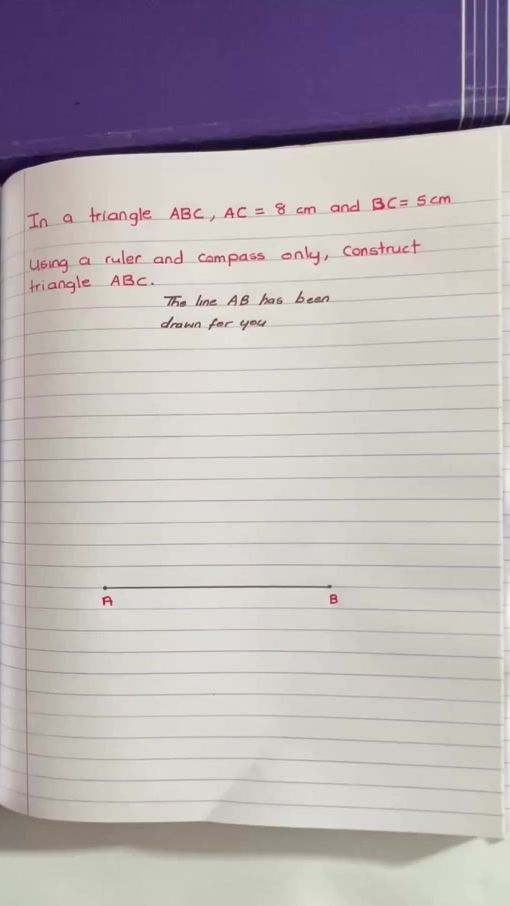 In a triangle ABC, AC = 8 cm and BC = 5 cm
Using a ruler and compass only, construct
triangle ABC.
The line AB has been
drawn for you
A B